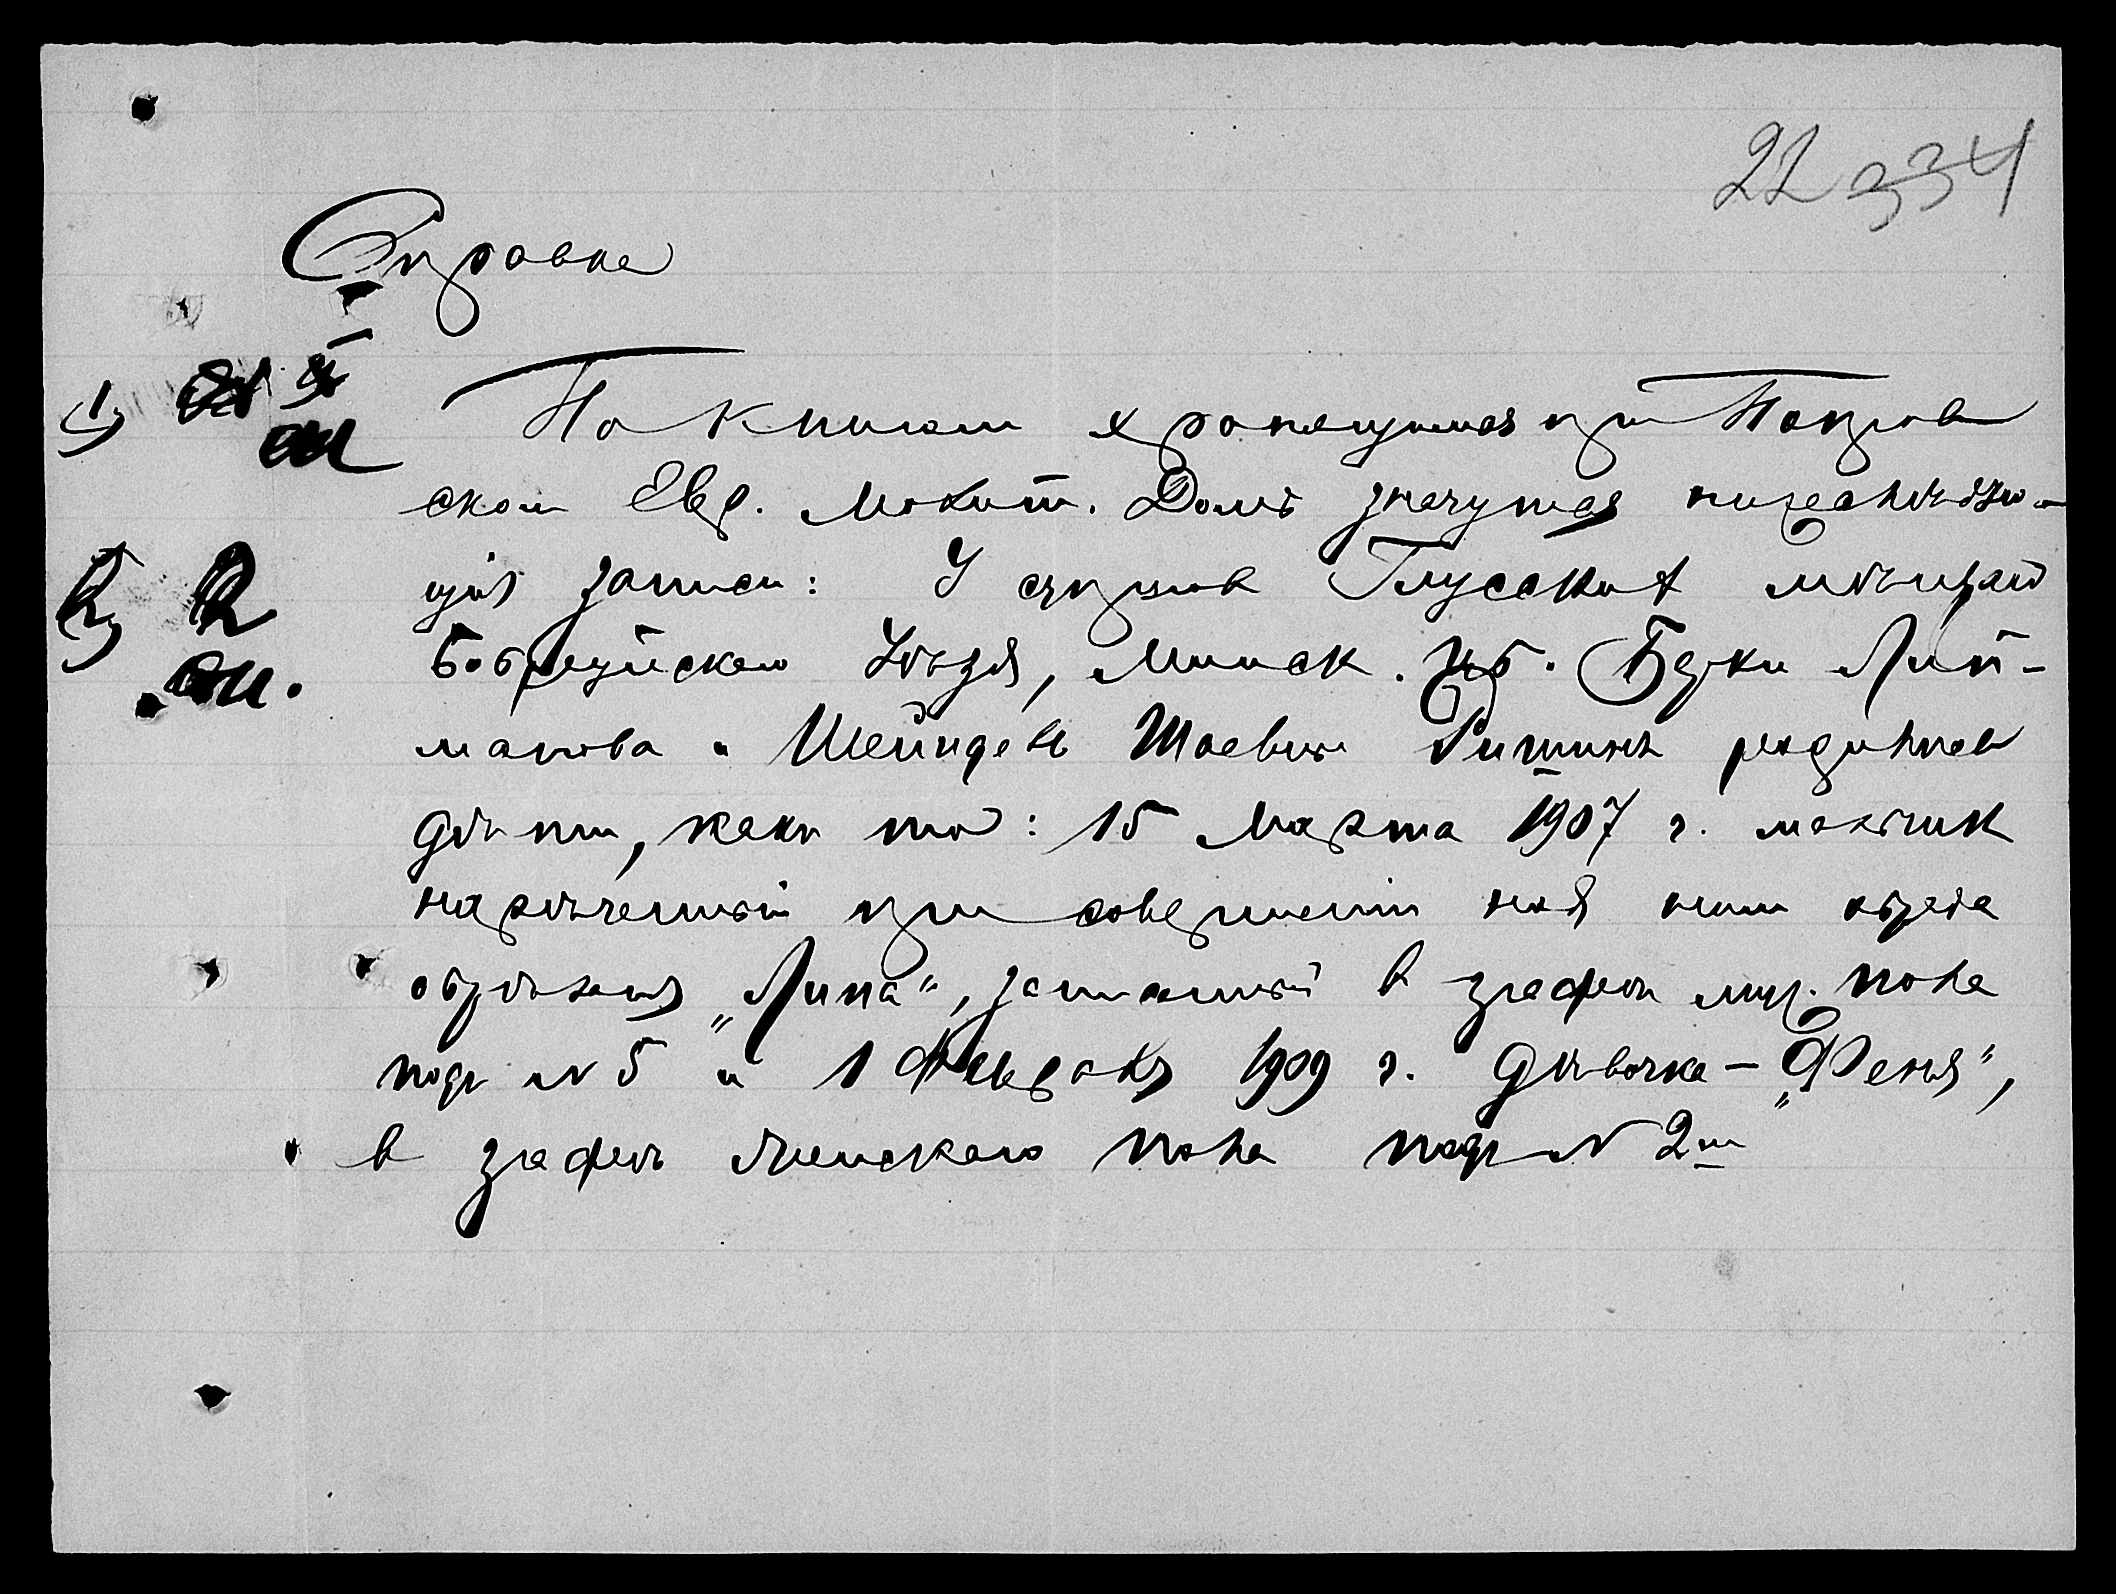 22 334
Справка
1)
По книгам хранящимся при Покров
ском Евр. Молит. Домѣ значутся нижеслѣдую-
щія записи: У супругов Глусских мѣщан
2) 2
Бобруйскаго Уѣзда, Минск. губ. Берки Лип-
манова и Шейндель Шаевны Ришиных родились
дѣти, какъ то: 15 Марта 1907 г. мальчик
нареченный при совершеніи над ним обряда
обрѣзанія „Липа“, записанный в графѣ муж. пола
подъ № 5 и 1 Февраля 1909 г. дѣвочка — „Феня“,
в графѣ женскаго пола подъ № 2м